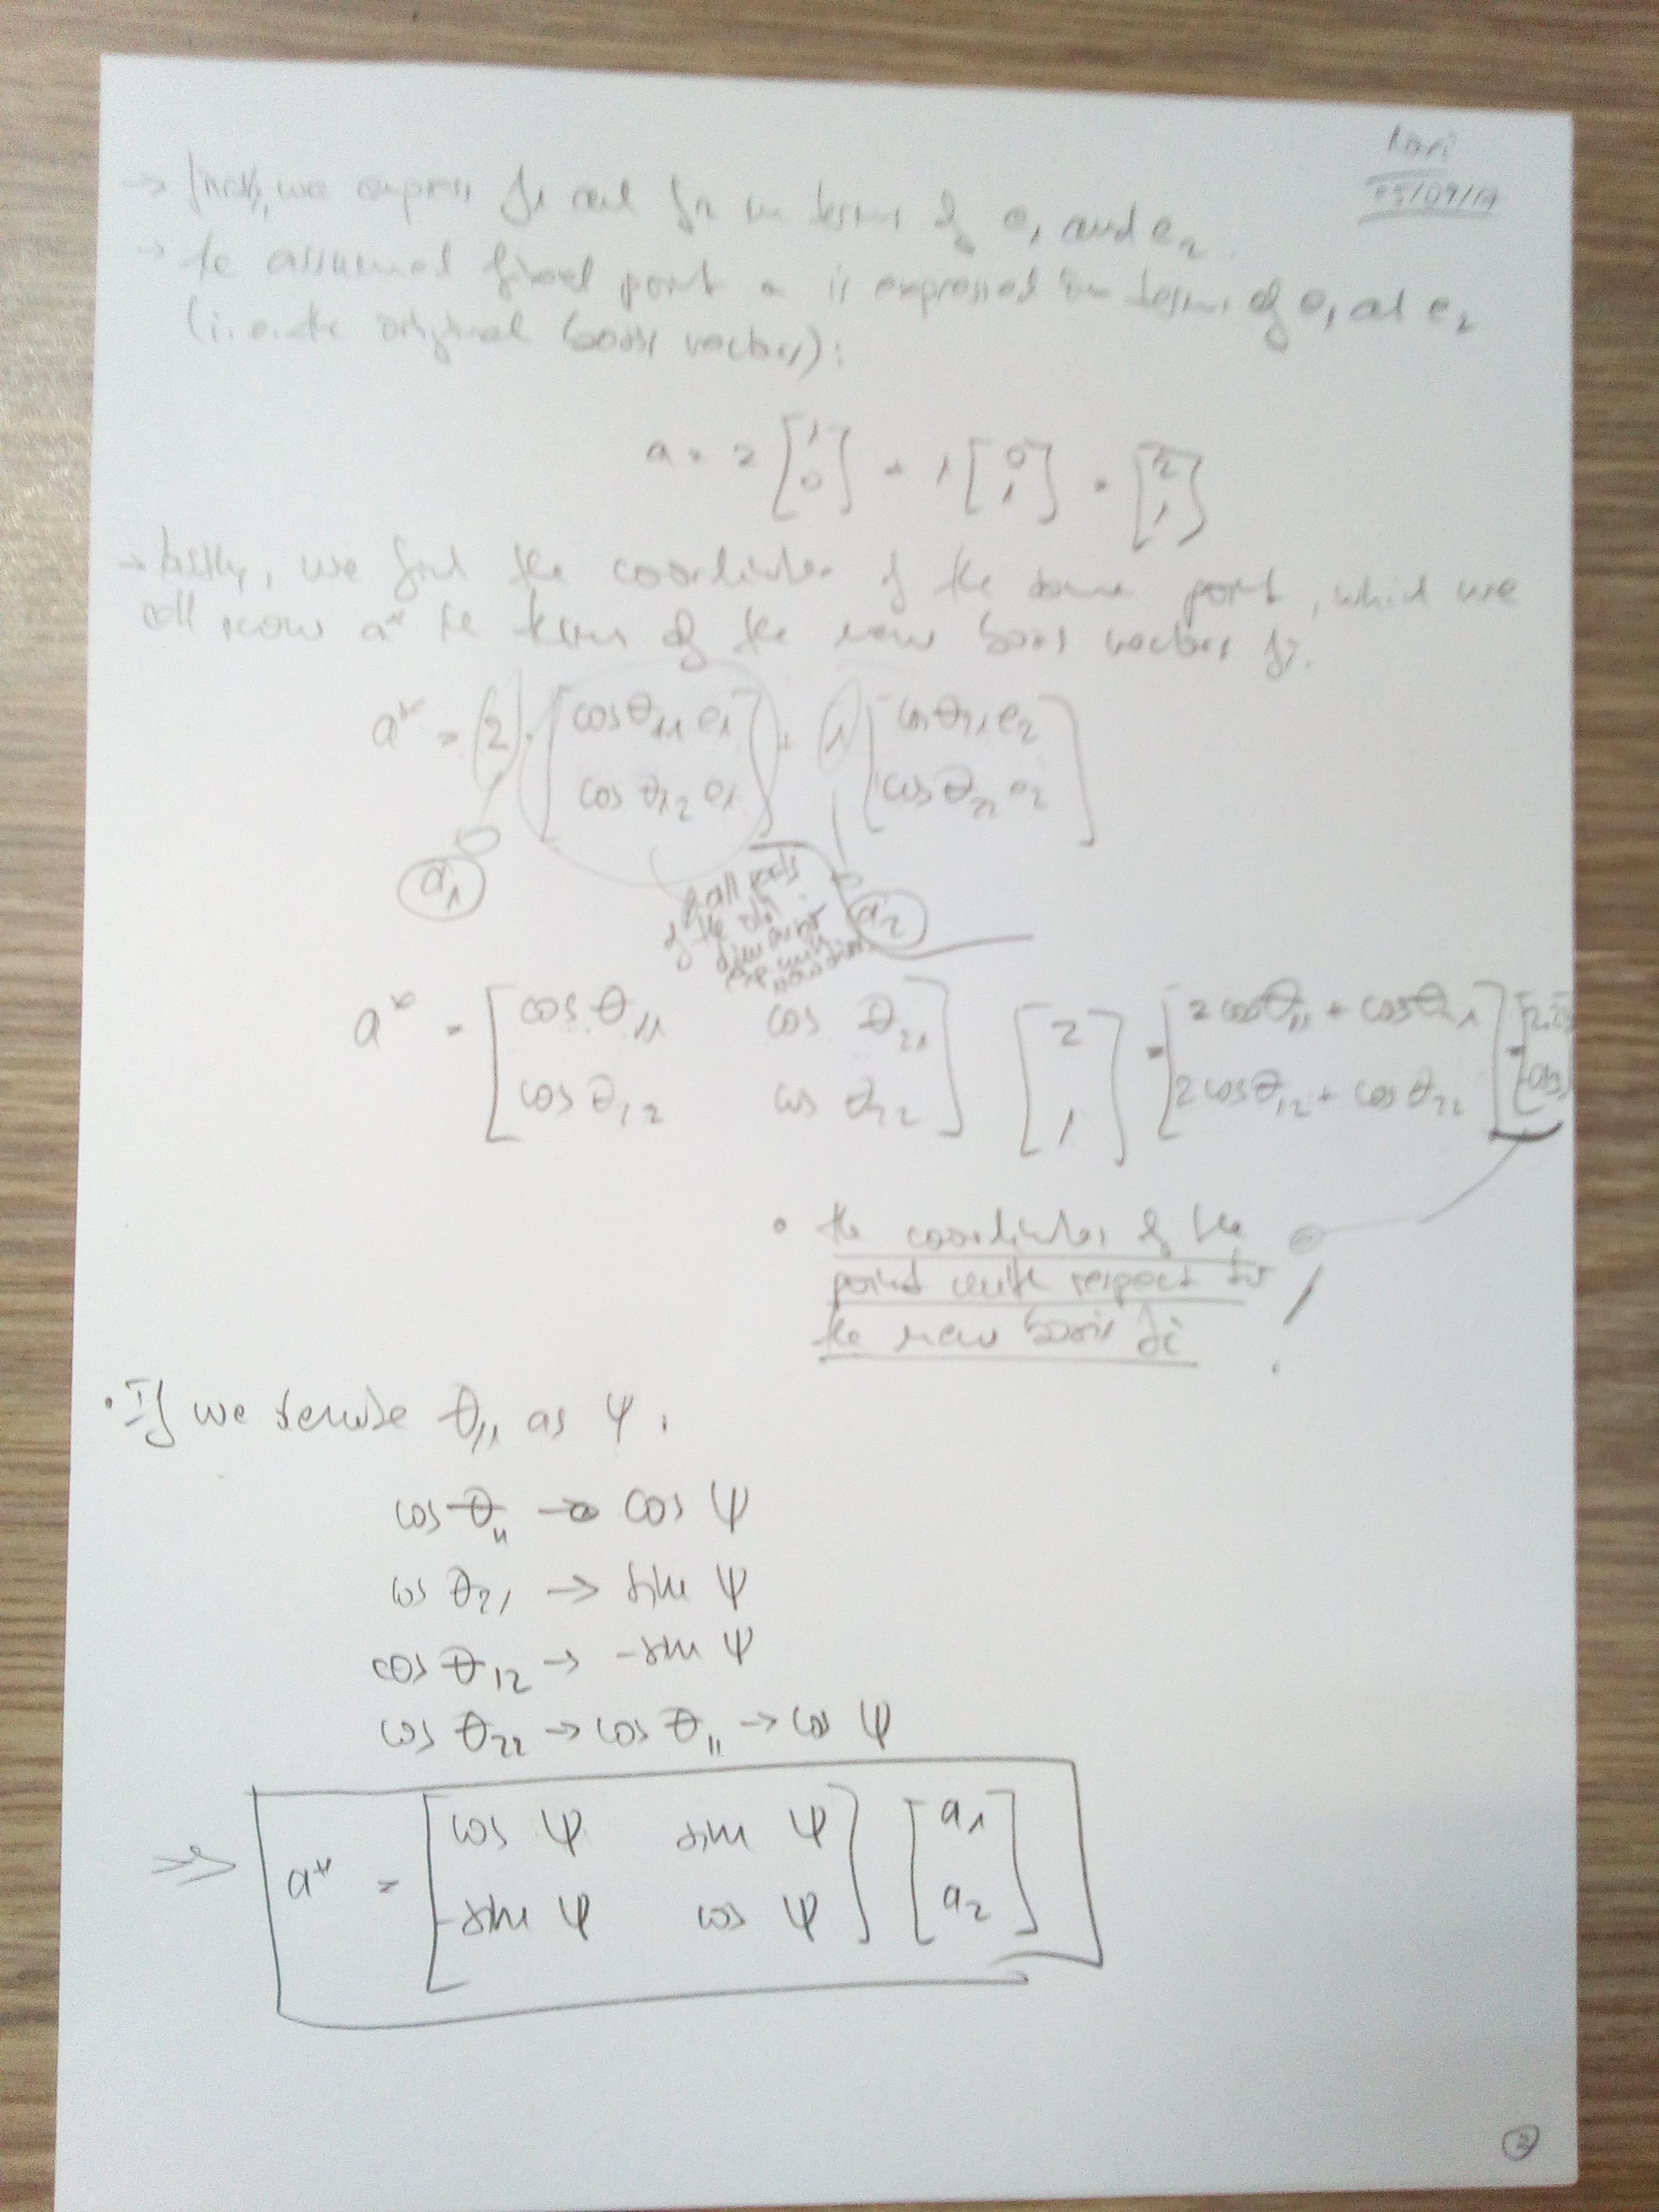 05/09/17
→ firstly, we express f1 and f2 in terms of e1 and e2.
→ the assumed fixed point a is expressed in terms of e1 and e2
(i.e. the original basis vectors):
a = 2 [1 0] + 1 [0 1] = [2 1]
→ lastly, we find the coordinates of the same point, which we
call now a* in terms of the new basis vectors fi.
a* = (2) · [cos θ11 e1 + (1) [cos θ21 e2
cos θ12 e1] cos θ22 e2]
a1
all
of the old
a2
a* = [cos θ11 cos θ21 [2 = [2 cos θ11 + cos θ21 =
cos θ12 cos θ22] 1] 2 cos θ12 + cos θ22]
• the coordinates of the
point with respect to
the new basis fi !
• If we denote θ11 as ψ.
cos θ11 → cos ψ
cos θ21 → sin ψ
cos θ12 → -sin ψ
cos θ22 → cos θ11 → cos ψ
⇒ a* = [cos ψ sin ψ [a1
-sin ψ cos ψ] a2]
2